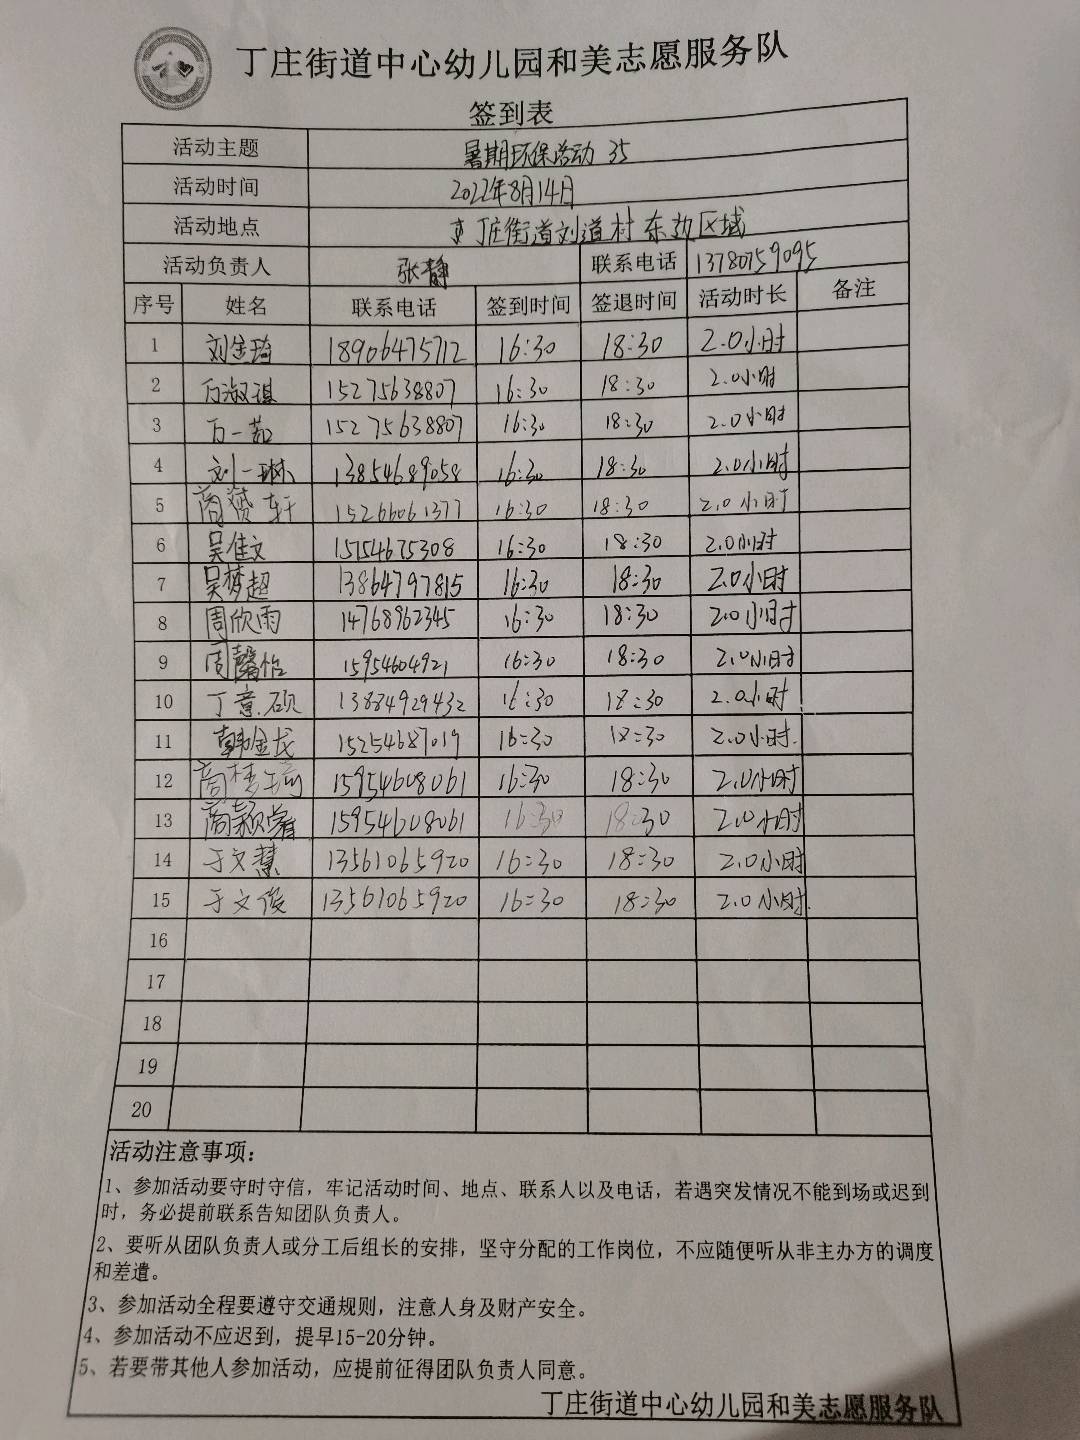 丁庄街道中心幼儿园和美志愿服务队
签到表
活动主题 暑期环保活动 35
活动时间 2022年8月14日
活动地点 丁庄街道刘道村东边区域
活动负责人 张静 联系电话 13780759095
序号 姓名 联系电话 签到时间 签退时间 活动时长 备注
1 刘金琦 18906475712 16:30 18:30 2.0小时
2 万淑琪 15275638807 16:30 18:30 2.0小时
3 万一茹 15275638807 16:30 18:30 2.0小时
4 刘一琳 13854689058 16:30 18:30 2.0小时
5 商赟轩 15266061377 16:30 18:30 2.0小时
6 吴佳文 15154675308 16:30 18:30 2.0小时
7 吴梦超 13864797815 16:30 18:30 2.0小时
8 周欣雨 14768962345 16:30 18:30 2.0小时
9 周馨怡 15954604921 16:30 18:30 2.0小时
10 丁意硕 13884929432 16:30 18:30 2.0小时
11 韩金龙 15254687019 16:30 18:30 2.0小时.
12 商梦琦 15954608061 16:30 18:30 2.0小时
13 商颖 15954608061 16:30 18:30 2.0小时
14 于文慧 13561065920 16:30 18:30 2.0小时
15 于文俊 13561065920 16:30 18:30 2.0小时.
16
17
18
19
20
活动注意事项：
1、参加活动要守时守信，牢记活动时间、地点、联系人以及电话，若遇突发情况不能到场或迟到
时，务必提前联系告知团队负责人。
2、要听从团队负责人或分工后组长的安排，坚守分配的工作岗位，不应随便听从非主办方的调度
和差遣。
3、参加活动全程要遵守交通规则，注意人身及财产安全。
4、参加活动不应迟到，提早15-20分钟。
5、若要带其他人参加活动，应提前征得团队负责人同意。
丁庄街道中心幼儿园和美志愿服务队